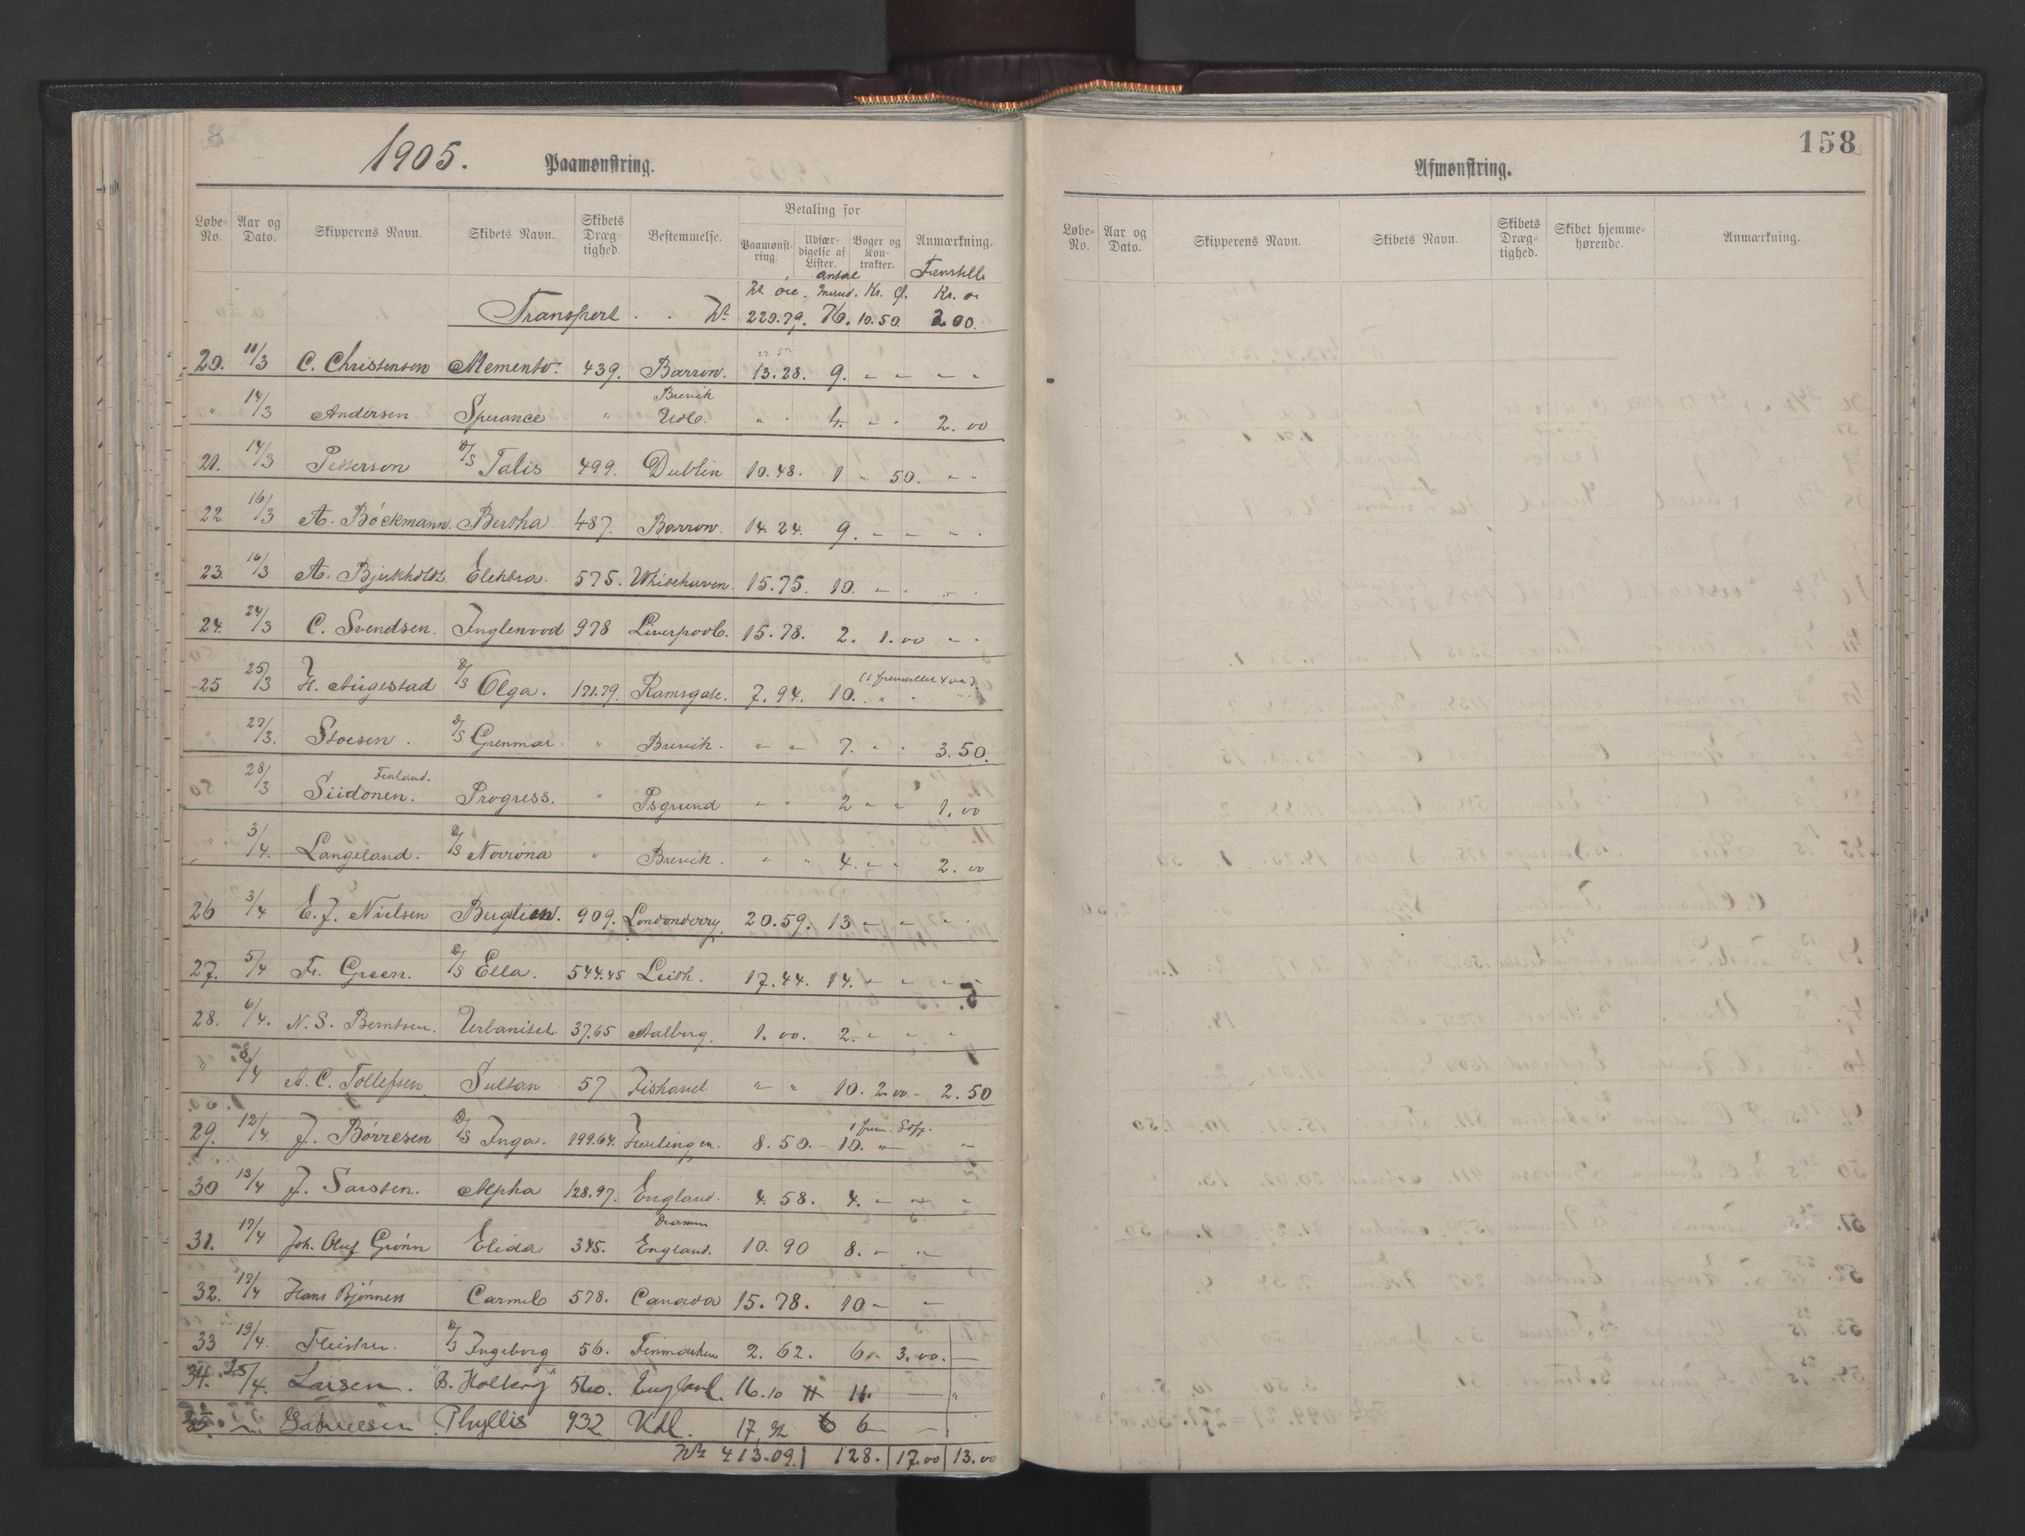 1905. Paamønstring.
Løbe-No. Aar og Dato. Skipperens Navn. Skibets Navn. Skibets Drægtighed. Bestemmelse. Betaling for Paamønstring. Udfærdigelse af Lister. Bøger og Kontrakter. Anmærkning.
antal
Kr. Kr.
Transport Kr 220.79. 76. 10.50 2.00
20. 11/3 C. Christensen Memento. 439. Barrow. 13.28. 9. " " " "
" 14/3 Andersen Sperance " Brevik Udl. " " 4. " " 2.00
21. 14/3 Petterson D/S Talis 499. Dublin 10.48. 1 " 50. " "
22. 16/3 A. Böckmann. Bertha. 487. Barrow. 14.24. 9. " " " "
23. 16/3 A. Bjerkholdt Elektra. 575. Whitehaven. 15.75. 10. " " " "
24. 24/3 C. Svendsen. Inglewood 978 Liverpool. 15.78. 2. 1.00 " "
25 25/3 H. Augestad D/S Olga. 171.79. Ramsgate. 7.94. 10. " " " "
" 27/3. Stoesen. D/S Grenmar. " Brevik. " " 7. " " 3.50.
28/3 Siidonen. Finland. Progress. " Psgrund " " 2 " " 1.00
" 3/4. Langeland. D/S Norröna " Brevik. " " 4. " " 2.00
26 3/4 E. J. Nielsen Berglien. 909. Londonderry. 20.59. 13 " " " "
27. 5/4 Fr. Green. D/S Ella. 544.45 Leith. 17.44. 14. " " " "
28. 6/4. N. S. Berntsen. Urbanitet. 37.65 Aalborg. 1.00. 2. " " "
" 8/4 A. C. Tollefsen. Sultan 57 Fiskaret " " 10. 2.00 - 2.50
29. 12/4. J. Börresen D/S Inga. 199.64. Harlingen. 8.50. - 10. " "
30 13/4 J. Sarsten. Alpha 128.97. England. 4.58. 4. " " "
31. 17/4 Joh. Oluf Grönn Elida 345. Dramm England. 10.90 8. " "
32. 17/4 Hans Bjönness Carmel 578. Canada 15.78. 10 " "
33 19/4. Fleischer. D/S Ingeborg 56. Finmarken 2.62. 6 " 3.00. —
34. 25/4. Larsen. "B. Holberg" 560. England. 16.10 11. — "
Gabrielsen Phyllis 932 Udl. 17.92 6 —
Kr 413.09. 128. 17.00 13.00
158
Afmønstring.
Løbe-No. Aar og Dato. Skipperens Navn. Skibets Navn. Skibets Drægtighed. Skibet hjemmehørende. Anmærkning.